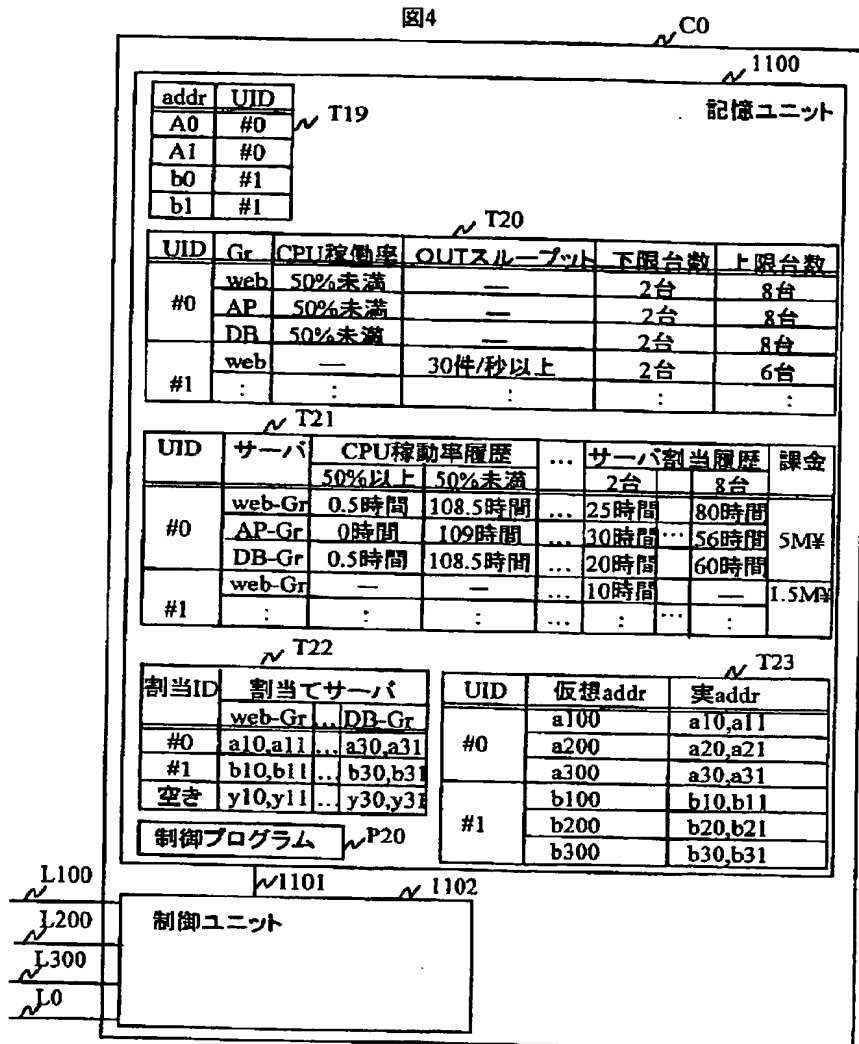 図4
C0
1100
記憶ユニット
addr UID
T19
A0 #0
A1 #0
b0 #1
b1 #1
T20
UID Gr CPU稼働率 OUTスループット 下限台数 上限台数
#0
web 50%未満 — 2台 8台
AP 50%未満 — 2台 8台
DB 50%未満 — 2台 8台
#1
web — 30件/秒以上 2台 6台
: : : : :
T21
UID サーバ CPU稼動率履歴 … サーバ割当履歴 課金
50%以上 50%未満 2台 8台
#0
web-Gr 0.5時間 108.5時間 … 25時間 80時間
AP-Gr 0時間 109時間 … 30時間 … 56時間
5M¥
DB-Gr 0.5時間 108.5時間 … 20時間 60時間
#1
web-Gr — — … 10時間 — 1.5M¥
: : : … : … :
T22
割当ID 割当てサーバ
web-Gr … DB-Gr
#0 a10,a11 … a30,a31
#1 b10,b11 … b30,b31
空き y10,y11 … y30,y31
制御プログラム
P20
T23
UID 仮想addr 実addr
#0
a100 a10,a11
a200 a20,a21
a300 a30,a31
#1
b100 b10,b11
b200 b20,b21
b300 b30,b31
1101
1102
制御ユニット
L100
L200
L300
L0